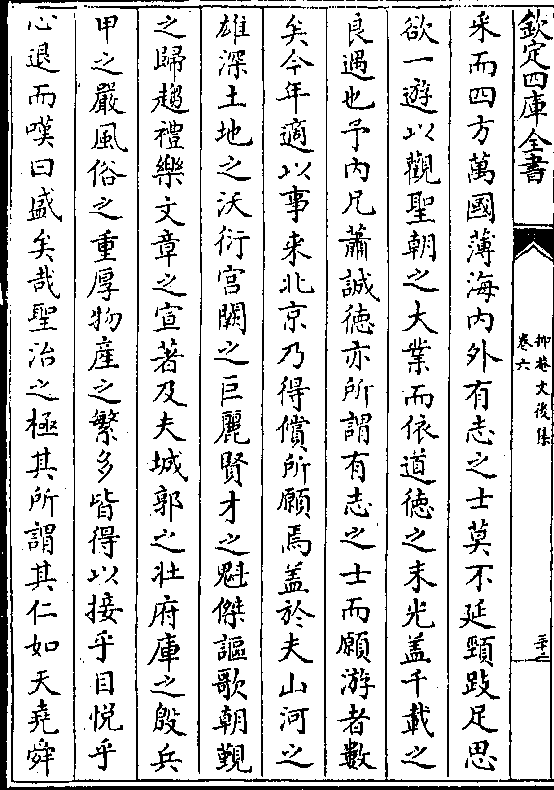 欽定四庫全書
抑菴文後集
卷六
采而四方萬國薄海內外有志之士莫不延頸跂足思
欲一遊以觀聖朝之大業而依道徳之末光盖千載之
良遇也予內兄蕭誠徳亦所謂有志之士而願游者數
矣今年適以事来北京乃得償所願焉盖於夫山河之
雄深土地之沃衍宫闕之巨麗賢才之魁傑謳歌朝覲
之歸趨禮樂文章之宣著及夫城郭之壮府庫之殷兵
甲之嚴風俗之重厚物産之繁多皆得以接乎目悦乎
心退而嘆曰盛矣哉聖治之極其所謂其仁如天堯舜